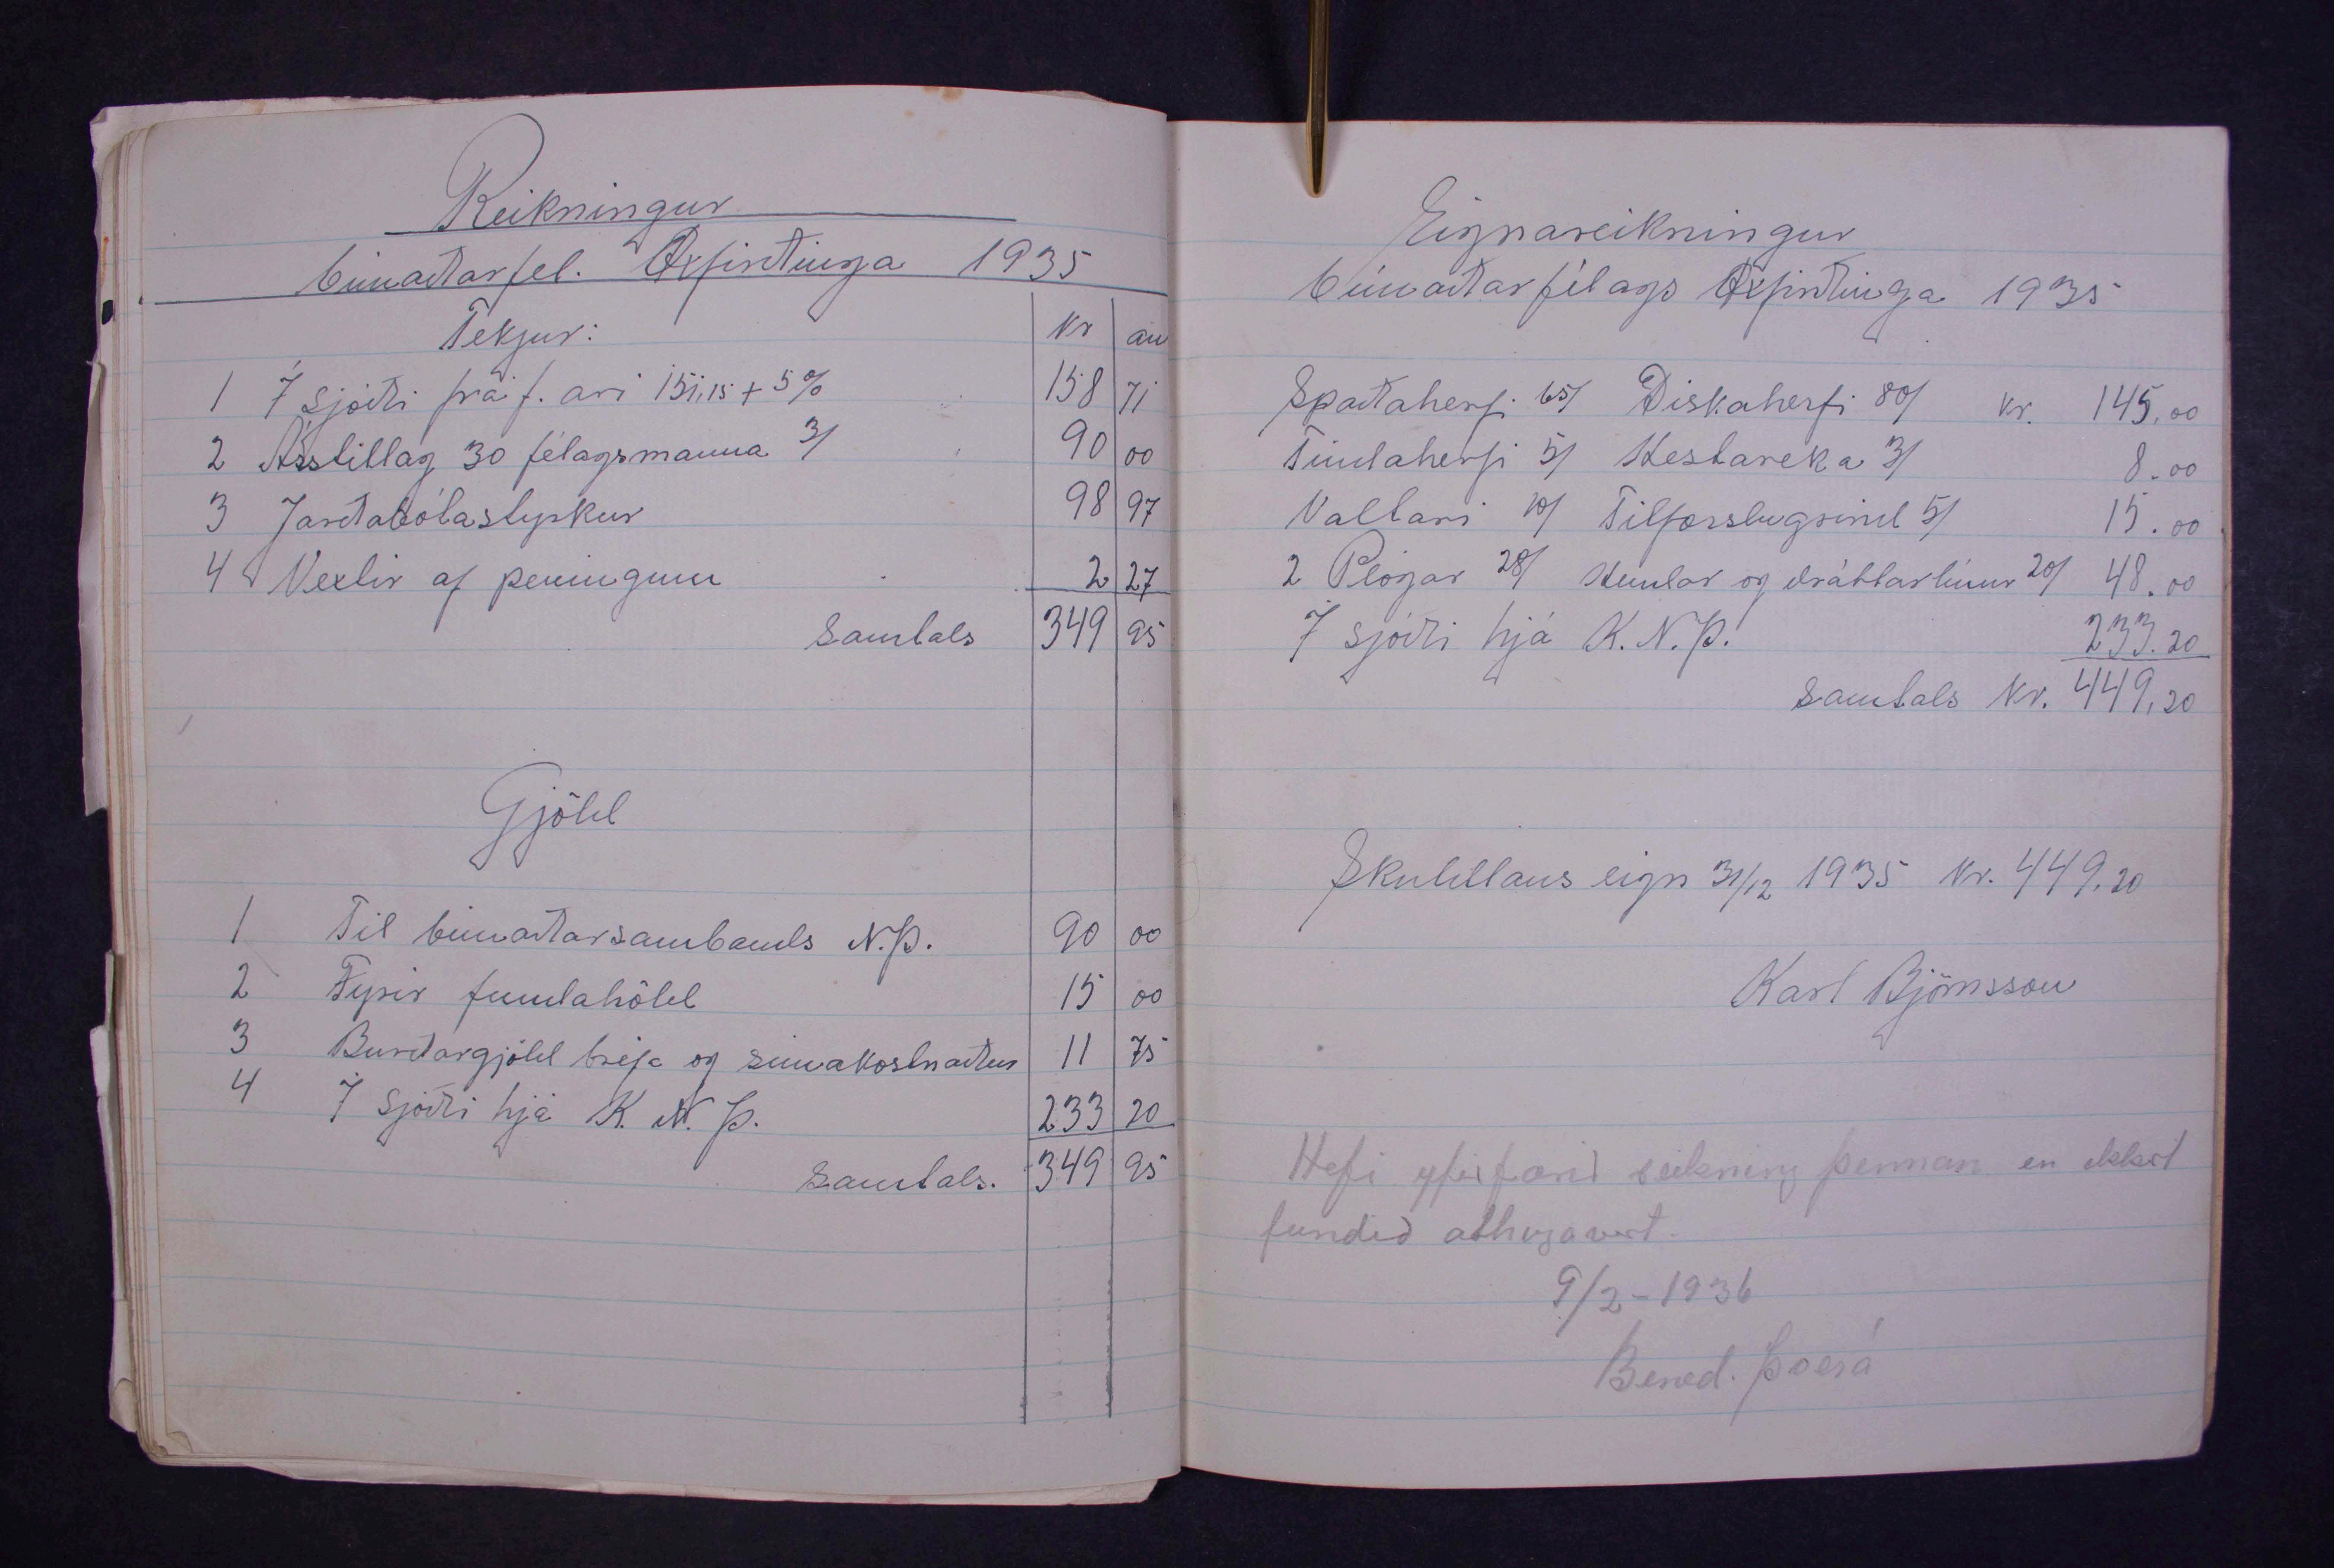 Reikningur
búnaðarfel. Öxfirðinga 1935
Tekjur: kr au
1 Í sjóði frá f. ári 151,15 + 5% 158 71
2 Árstillag 30 félagsmanna 3/ 90 00
3 Jarðabótastyrkur 98 97
4 Vextir af peningum 2 27
Samtals 349 95
Gjöld
1 Til búnaðarsambands N.Þ. 90 00
2 Fyrir fundahöld 15 00
3 Burðargjöld brefa og símakostnaður 11 75
4 Í sjóði hjá K. N. Þ. 233 20
Samtals. 349 95
Eignareikningur
búnaðarfélags Öxfirðinga 1935
Spaðaherfi 65/ Diskaherfi 80/ kr. 145,00
Tindaherfi 5/ Hestareka 3/ 8.00
Valtari 10/ 5/ 15.00
2 Plógar 28/ Hemlar og dráttartínur 20/ 48.00
Í sjóði hjá K.N.Þ. 233.20
Samtals Kr. 449,20
Skuldlaus eign 31/12 1935 Kr. 449.20
Karl Björnsson
Hefi yfirfarið reikning þennan en ekkert
fundið athugavert.
9/2-1936
Bened.